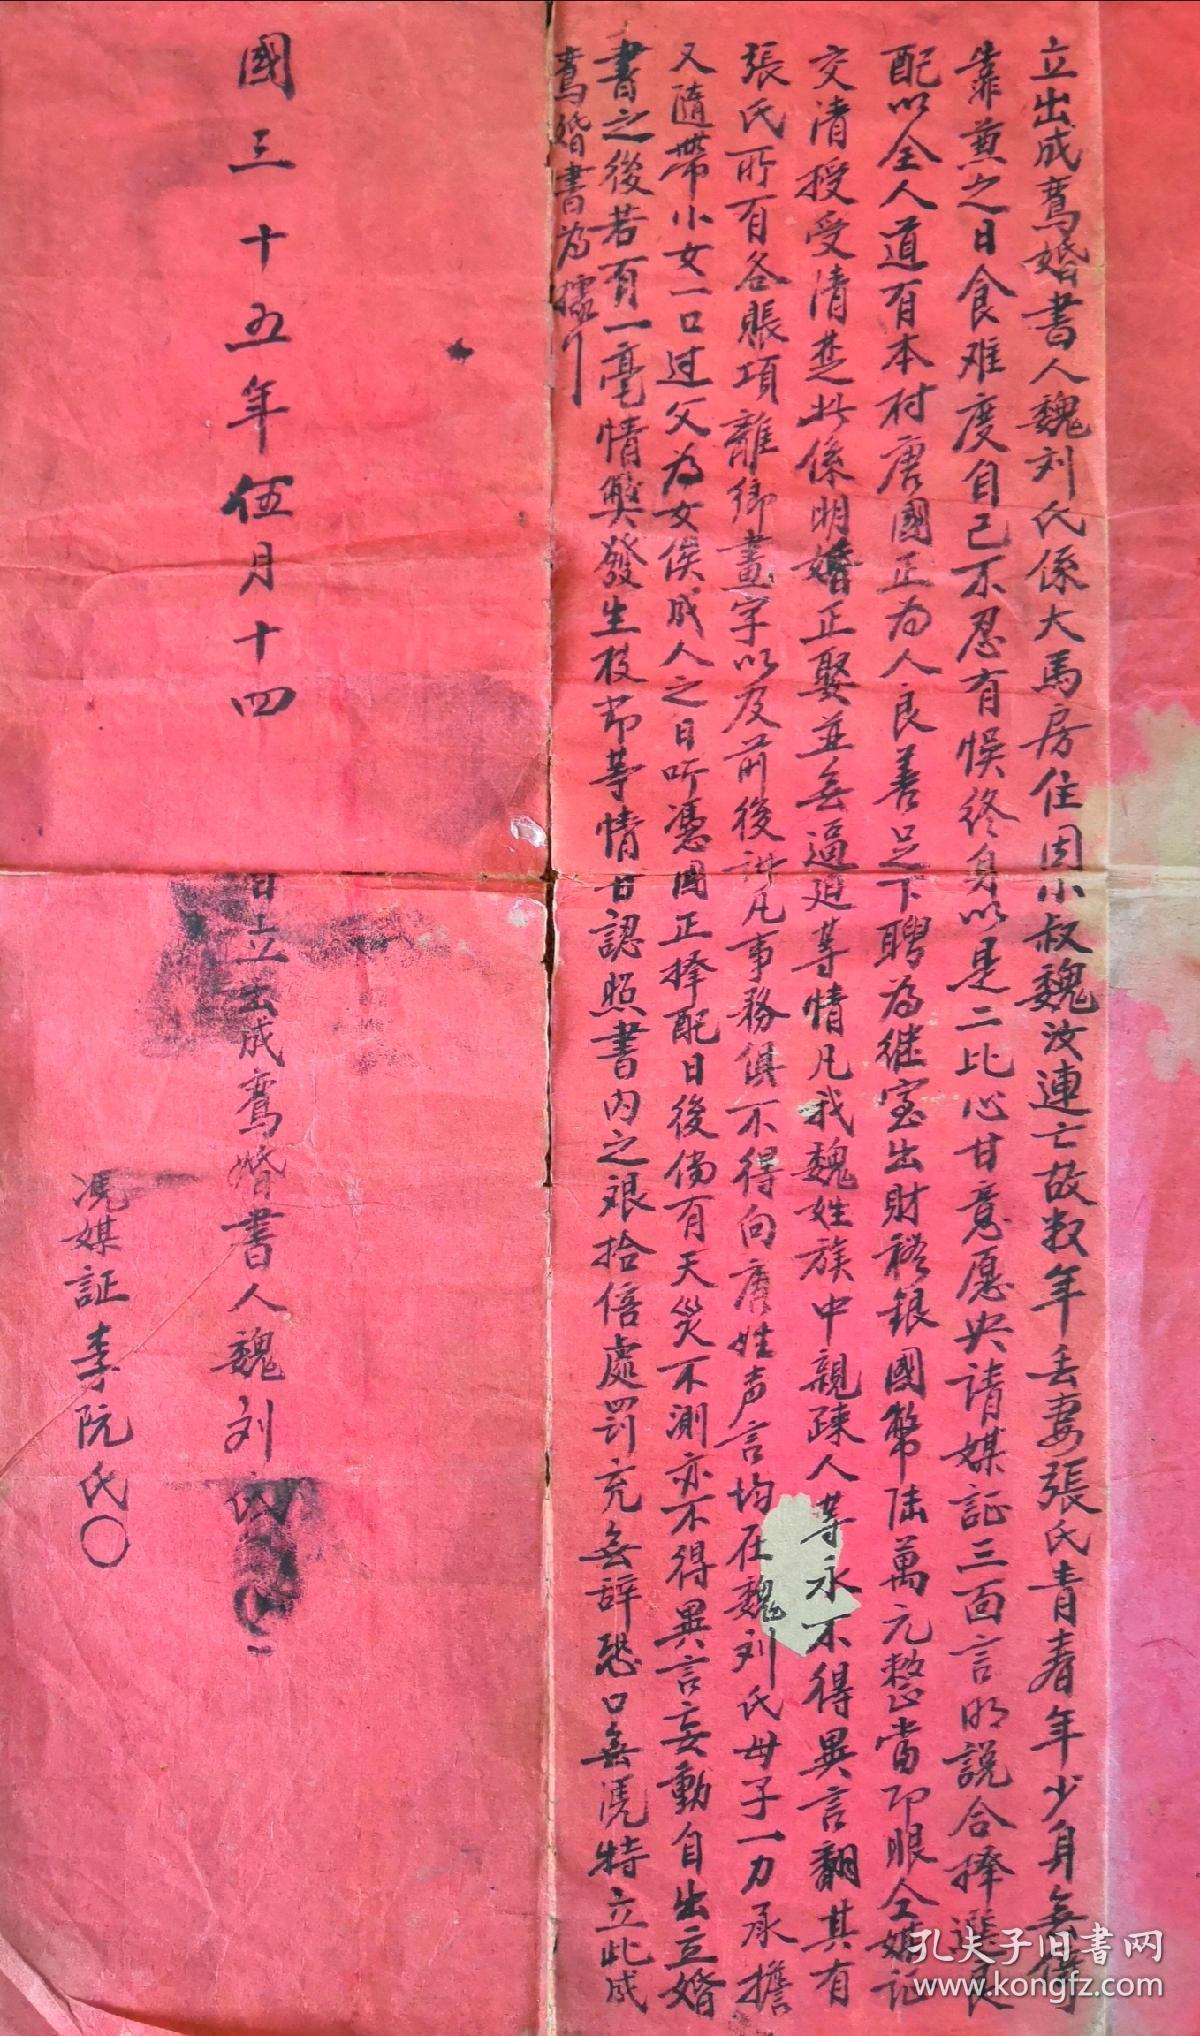 立出成鸞婚書人魏刘氏係大馬房住因小叔魏汝連亡故数年丢妻張氏青春年少身無倚
靠煎之日食难度自己不忍有悮终身以是二比心甘意愿央请媒証三面言明説合择選良
配以全人道有本村唐國正为人良善足下聘为继室出財禮銀國幣陆萬元整当即眼仝媒証
交清授受清楚此係明婚正娶並無逼迫等情凡我魏姓族中親疎人等永不得異言翻其有
張氏所有各賬項離鄉畫字以及前後計凡事務俱不得向唐姓声言均在魏刘氏母子一力承擔
又隨帶小女一口过父为女俟成人之日听憑國正择配日後倘有天災不測亦不得異言妄動自出立婚
書之後若有一毫情獘發生枝节等情甘認照書內之艰拾倍處罰充無辞恐口無凭特立此成
鸞婚書为據
國三十五年伍月十四
日立出成鸞婚書人魏刘氏
凭媒証李阮氏〇
孔夫子旧書网
www.kongfz.com